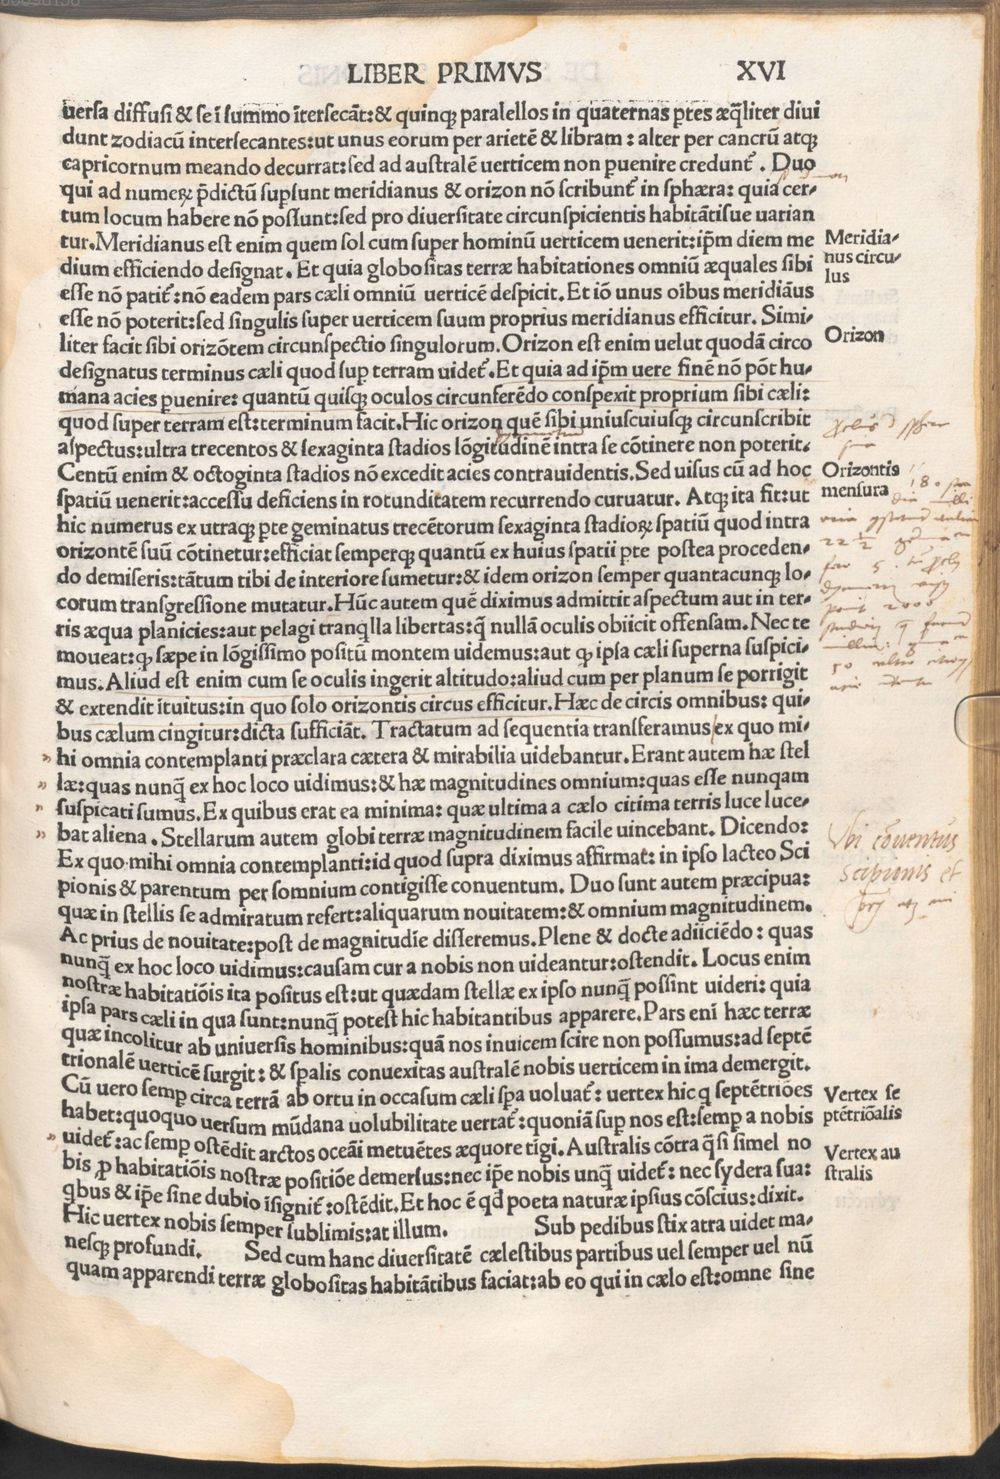 LIBER PRIMVS XVI
uersa diffusi & se ĩ summo ĩtersecãt: & quinq; paralellos in quaternas ptes æq̃liter diui
dunt zodiacũ intersecantes: ut unus eorum per arietẽ & libram: alter per cancrũ atq;
capricornum meando decurrat: sed ad australẽ uerticem non puenire credunt̃. Duo
qui ad numeꝝ p̃dictũ supsunt meridianus & orizon nõ scribunt̃ in sphæra: quia cer-
tum locum habere nõ possunt: sed pro diuersitate circunspicientis habitãtisue uarian
tur. Meridianus est enim quem sol cum super hominũ uerticem uenerit: ip̃m diem me
dium efficiendo designat. Et quia globositas terræ habitationes omniũ æquales sibi
esse nõ patit̃: nõ eadem pars cæli omniũ uerticẽ despicit. Et iõ unus oĩbus meridiãus
esse nõ poterit: sed singulis super uerticem suum proprius meridianus efficitur. Simi-
liter facit sibi orizõtem circunspectio singulorum. Orizon est enim uelut quodã circo
designatus terminus cæli quod sup terram uidet̃. Et quia ad ip̃m uere finẽ nõ põt hu-
mana acies puenire: quantũ quisq; oculos circunferẽdo conspexit proprium sibi cæli:
quod super terram est: terminum facit. Hic orizon quẽ sibi uniuscuiusq; circunscribit
aspectus: ultra trecentos & sexaginta stadios lõgitudinẽ intra se cõtinere non poterit.
Centũ enim & octoginta stadios nõ excedit acies contrauidentis. Sed uisus cũ ad hoc
spatiũ uenerit: accessu deficiens in rotunditatem recurrendo curuatur. Atq; ita fit: ut
hic numerus ex utraq; pte geminatus trecẽtorum sexaginta stadioꝝ spatiũ quod intra
orizontẽ suũ cõtinetur: efficiat semperq; quantũ ex huius spatii pte postea proceden-
do demiseris: tãtum tibi de interiore sumetur: & idem orizon semper quantacunq; lo-
corum transgressione mutatur. Hũc autem quẽ diximus admittit aspectum aut in ter-
ris æqua planicies: aut pelagi tranqlla libertas: q̃ nullã oculis obiicit offensam. Nec te
moueat: q; sæpe in lõgissimo positũ montem uidemus: aut q; ipsa cæli superna suspici-
mus. Aliud est enim cum se oculis ingerit altitudo: aliud cum per planum se porrigit
& extendit ĩtuitus: in quo solo orizontis circus efficitur. Hæc de circis omnibus: qui-
bus cælum cingitur: dicta sufficiãt. Tractatum ad sequentia transferamus/ex quo mi-
hi omnia contemplanti præclara cætera & mirabilia uidebantur. Erant autem hæ stel
læ: quas nunq̃ ex hoc loco uidimus: & hæ magnitudines omnium: quas esse nunqam
suspicati sumus. Ex quibus erat ea minima: quæ ultima a cælo citima terris luce luce-
bat aliena. Stellarum autem globi terræ magnitudinem facile uincebant. Dicendo:
Ex quo mihi omnia contemplanti: id quod supra diximus affirmat: in ipso lacteo Sci
pionis & parentum per somnium contigisse conuentum. Duo sunt autem præcipua:
quæ in stellis se admiratum refert: aliquarum nouitatem: & omnium magnitudinem.
Ac prius de nouitate: post de magnitudĩe disseremus. Plene & docte adiiciẽdo: quas
nunq̃ ex hoc loco uidimus: causam cur a nobis non uideantur: ostendit. Locus enim
nostræ habitatiõis ita positus est: ut quædam stellæ ex ipso nunq̃ possint uideri: quia
ipsa pars cæli in qua sunt: nunq̃ potest hic habitantibus apparere. Pars eni hæc terræ
quæ incolitur ab uniuersis hominibus: quã nos inuicem scire non possumus: ad septẽ
trionalẽ uerticẽ surgit: & spalis conuexitas australẽ nobis uerticem in ima demergit.
Cũ uero semp circa terrã ab ortu in occasum cæli spa uoluat̃: uertex hic q septẽtriões
habet: quoquo uersum mũdana uolubilitate uertat̃: quoniã sup nos est: semp a nobis
uidet̃: ac semp ostẽdit arctos oceãi metuẽtes æquore tĩgi. Australis cõtra q̃si simel no
bis ꝓ habitatiõis nostræ positiõe demersus: nec ip̃e nobis unq̃ uidet̃: nec sydera sua:
qbus & ip̃e sine dubio ĩsignit̃: ostẽdit. Et hoc ẽ qd poeta naturæ ipsius cõscius: dixit.
Hic uertex nobis semper sublimis: at illum. Sub pedibus stix atra uidet ma-
nesq; profundi. Sed cum hanc diuersitatẽ cælestibus partibus uel semper uel nũ
quam apparendi terræ globositas habitãtibus faciat: ab eo qui in cælo est: omne sine
Meridia-
nus circu-
lus
Orizon
Orizontis
mensura
Vbi cõuentus
scipionis et
Vertex se
ptẽtriõalis
Vertex au
stralis